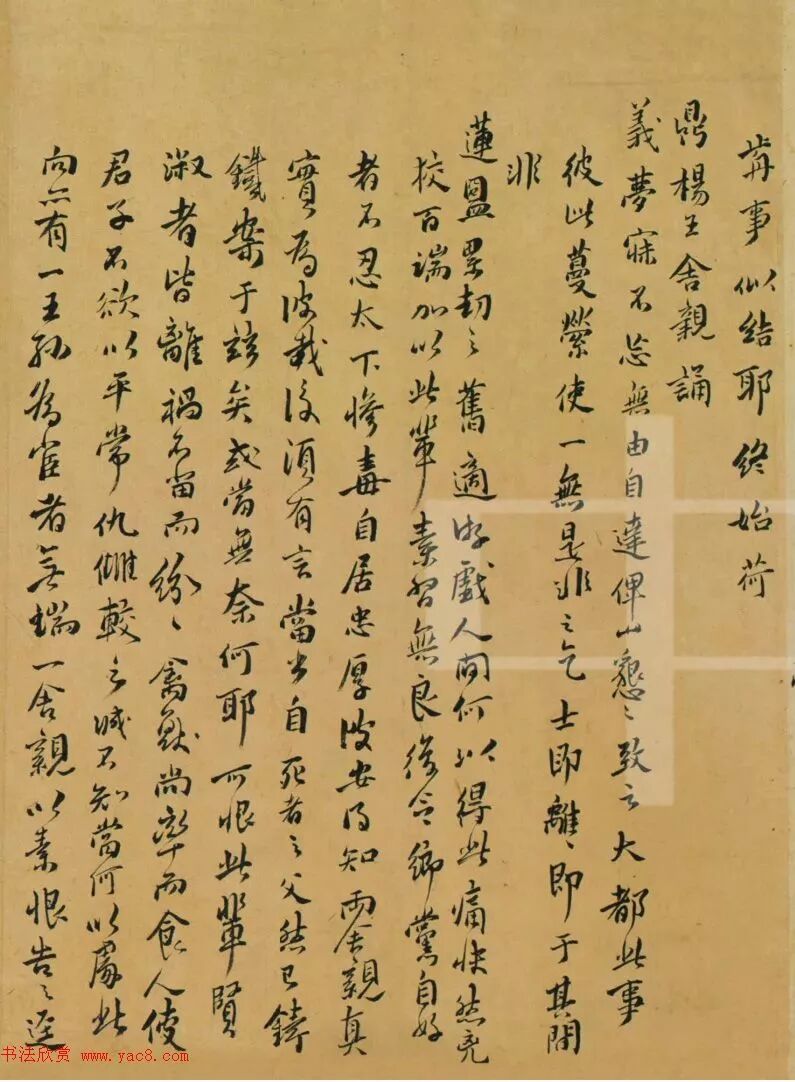 事似結耶終始荷
鼎楊王舍親誦
義夢寐不忘無由自達俾山懇〻致之大都此事
彼此蔓縈使一無是非之乞士即離〻即于其閒
非
蓮盟累劫之舊適游戲人間何以得此痛快然亮
校百端加以此輩素習無良後令鄉黨自好
者不忍太下慘毒自居忠厚彼安得知兩舍親真
實為彼截後須有言當出自死者之父然已鑄
鐵案于茲矣或當無奈何耶所恨此輩賢
淑者皆離禍不啻而紛〻禽獸尚率而食人使
君子不欲以平常仇雠較之誠不知當何以處此
向亦有一王孫為雀者無端一舍親以素恨告〻逕
书法欣赏 www.yac8.com